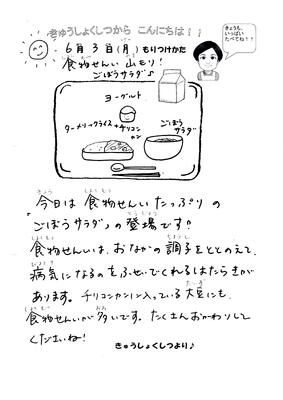 きゅうしょくしつから こんにちは!!
きょうも、
いっぱい
たべてね!!
6月3日(月) もりつけかた
食物せんい 山もり!
ごぼうサラダ♪
ヨーグルト
ターメリックライス+チリコンカン
ごぼうサラダ
今日は 食物せんいたっぷりの
「ごぼうサラダ」の登場です。
食物せんいは、おなかの調子をととのえて、
病気になるのをふせいでくれるはたらきが
あります。チリコンカンに入っている大豆にも、
食物せんいが多いです。たくさんおかわりして
くださいね!
きゅうしょくしつより♪